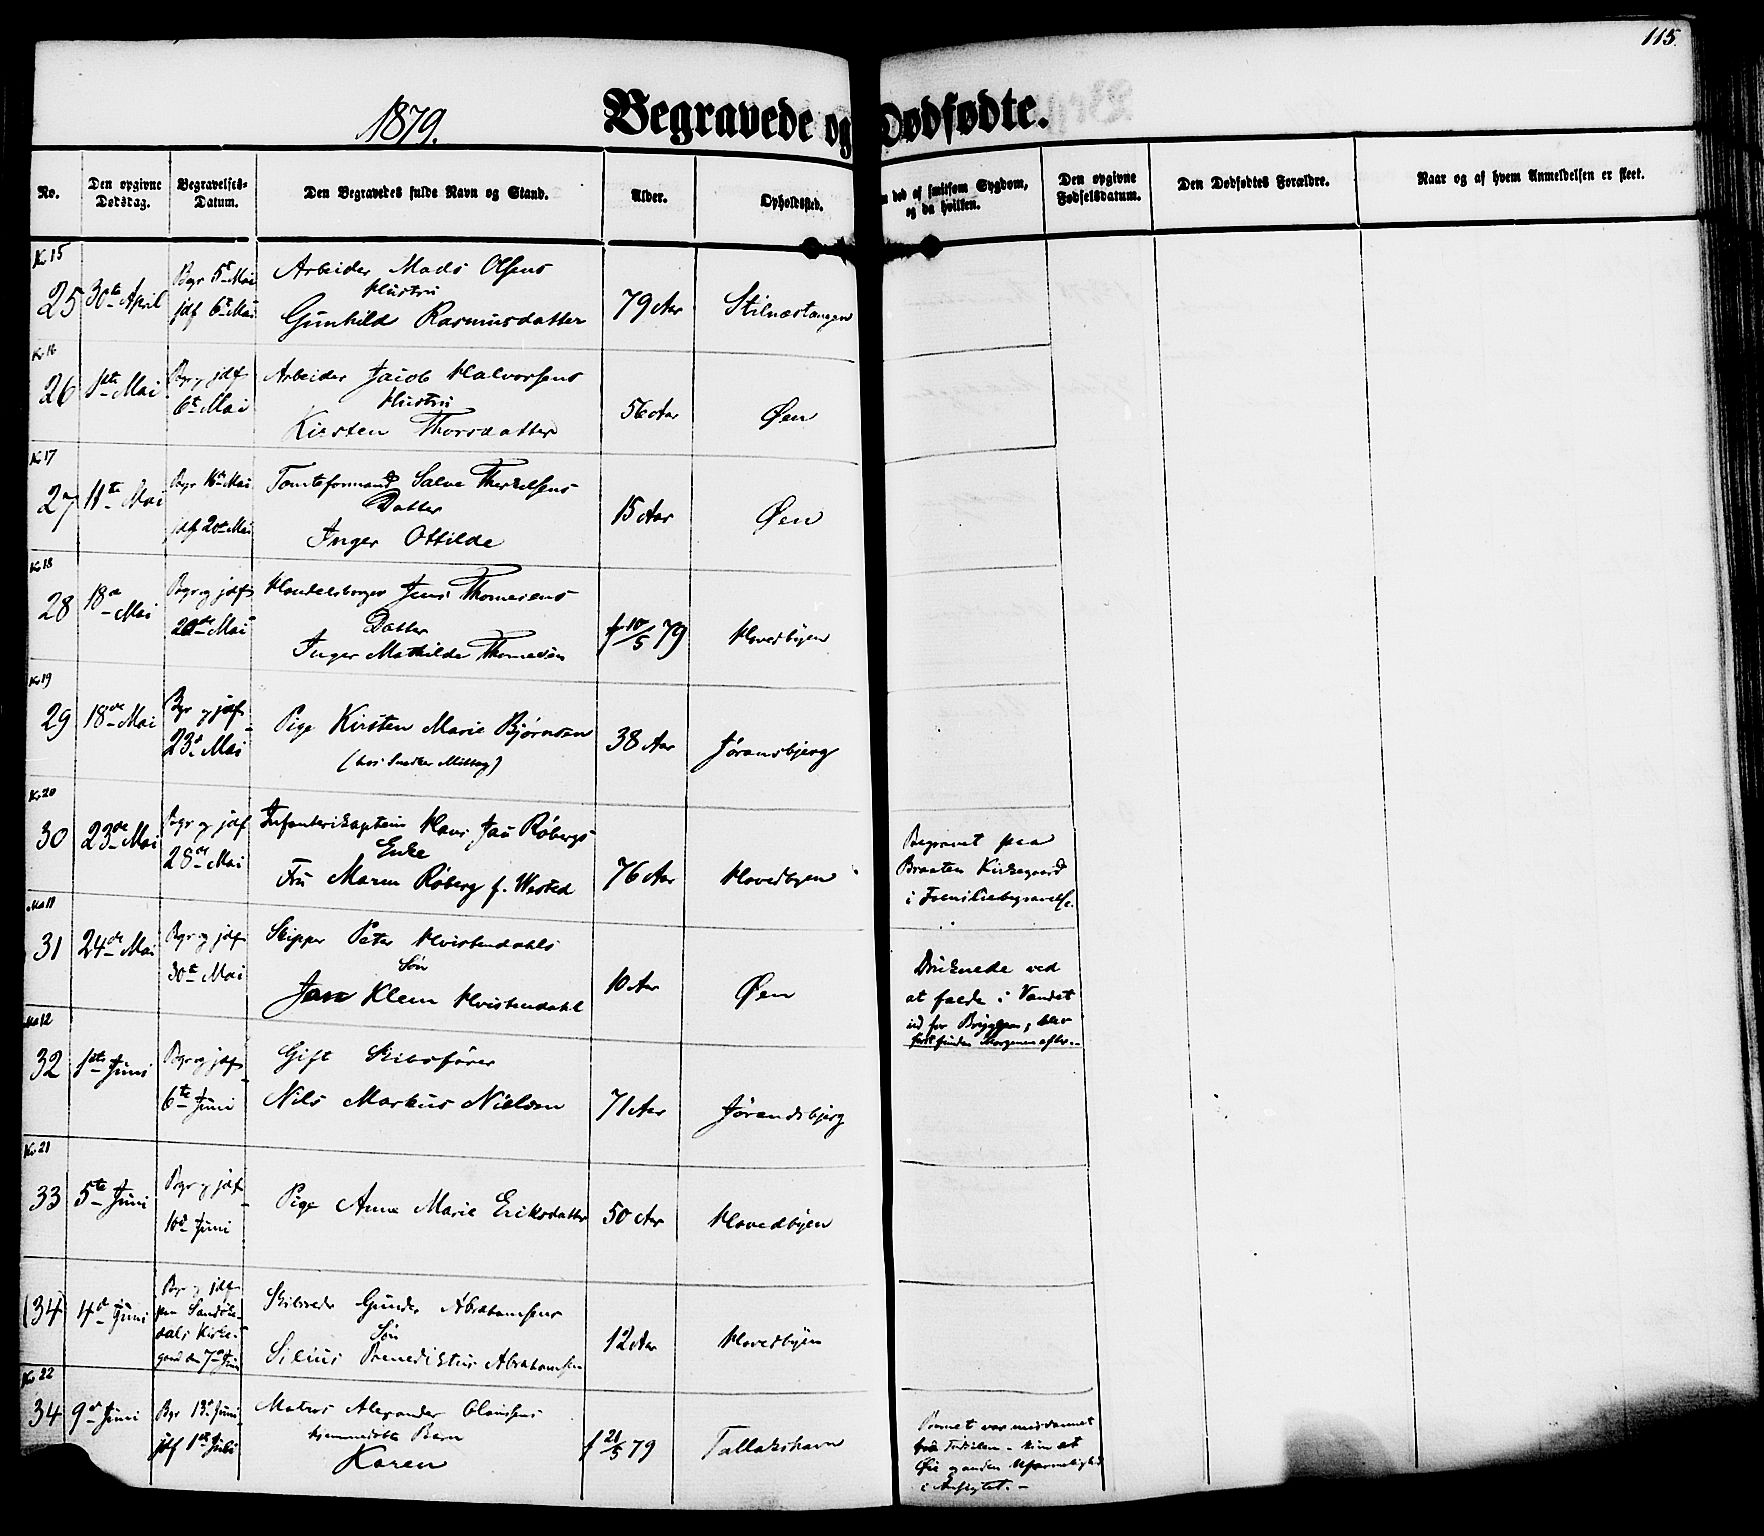 115.
1879.
Begravede og Dødfødte.
No.
Den opgivne Dødsdag.
Begravelses-Datum.
Den Begravedes fulde Navn og Stand.
Alder.
Opholdssted.
død af smitsom Sygdom, og da hvilken.
Den opgivne Fødselsdatum.
Den Dødfødtes Forældre.
Naar og af hvem Anmeldelsen er skeet.
Kv 15
25 30te April Bgr 5te Mai jdf 6te Mai
Arbeider Mads Olsens
Hustru
Gunhild Rasmusdatter
79 Aar
Stilnæstangen
Kv 16
26 1ste Mai Bgr og jdf 6te Mai
Arbeider Jacob Halvorsens
Hustru
Kirsten Thorsdatter
56 Aar
Øen
Kv 17
27 11te Mai Bgr 16de Mai jdf 20de Mai
Tomteformand Salve Therkelsens
Datter
Inger Ottilde
15 Aar
Øen
Kv 18
28 18de Mai Bgr og jdf 20de Mai
Handelsborger Jens Thomesens
Datter
Inger Mathilde Thomesen
f 10/5 79
Hovedbyen
Kv 19
29 18de Mai Bgr og jdf 23de Mai
Pige Kirsten Marie Bjørnsen
(hos Snedker Mittag)
38 Aar
Jøransbjerg
Kv 20
30 23de Mai Bgr og jdf 28de Mai
Infanterikaptein Hans Jan Røbergs
Enke
Fru Maren Røberg f. Wested
76 Aar
Hovedbyen
Begravet paa
Braaten Kirkegaard
i Familiebegravelse.
Ma 11
31 24de Mai Bgr og jdf 30te Mai
Skipper Peter Hvistendahls
Søn
Jan Klem Hvistendahl
10 Aar
Øen
Druknede ved
at falde i Vandet
ud for Bryggen, blev
først funden Morgenen efter.
Ma 12
32 1ste Juni Bgr og jdf 6te Juni
Gift Skibsfører
Nils Markus Nielsen
71 Aar
Jørandsbjerg
Kv 21
33 5te Juni Bgr og jdf 10de Juni
Pige Anne Marie Eriksdatter
50 Aar
Hovedbyen
(34) 4de Juni
Bgr og jdf
paa Sandøke-
dals Kirke-
gaard den 7de Juni
Gunder Abrahamsens
Søn
Benediktus Abrahamsen
12 Aar
Hovedbyen
Kv 22
34 9de Juni Bgr 13de Juni jdf 1ste Juli
Matros Alexander Olausens
hjemmedøbte Barn
Karen
f 21/5 79
Tallakshavn
Barnet var misdannet
fra Fødselen - kun et
Øie og anden Uformelighed
i Ansigtet. -